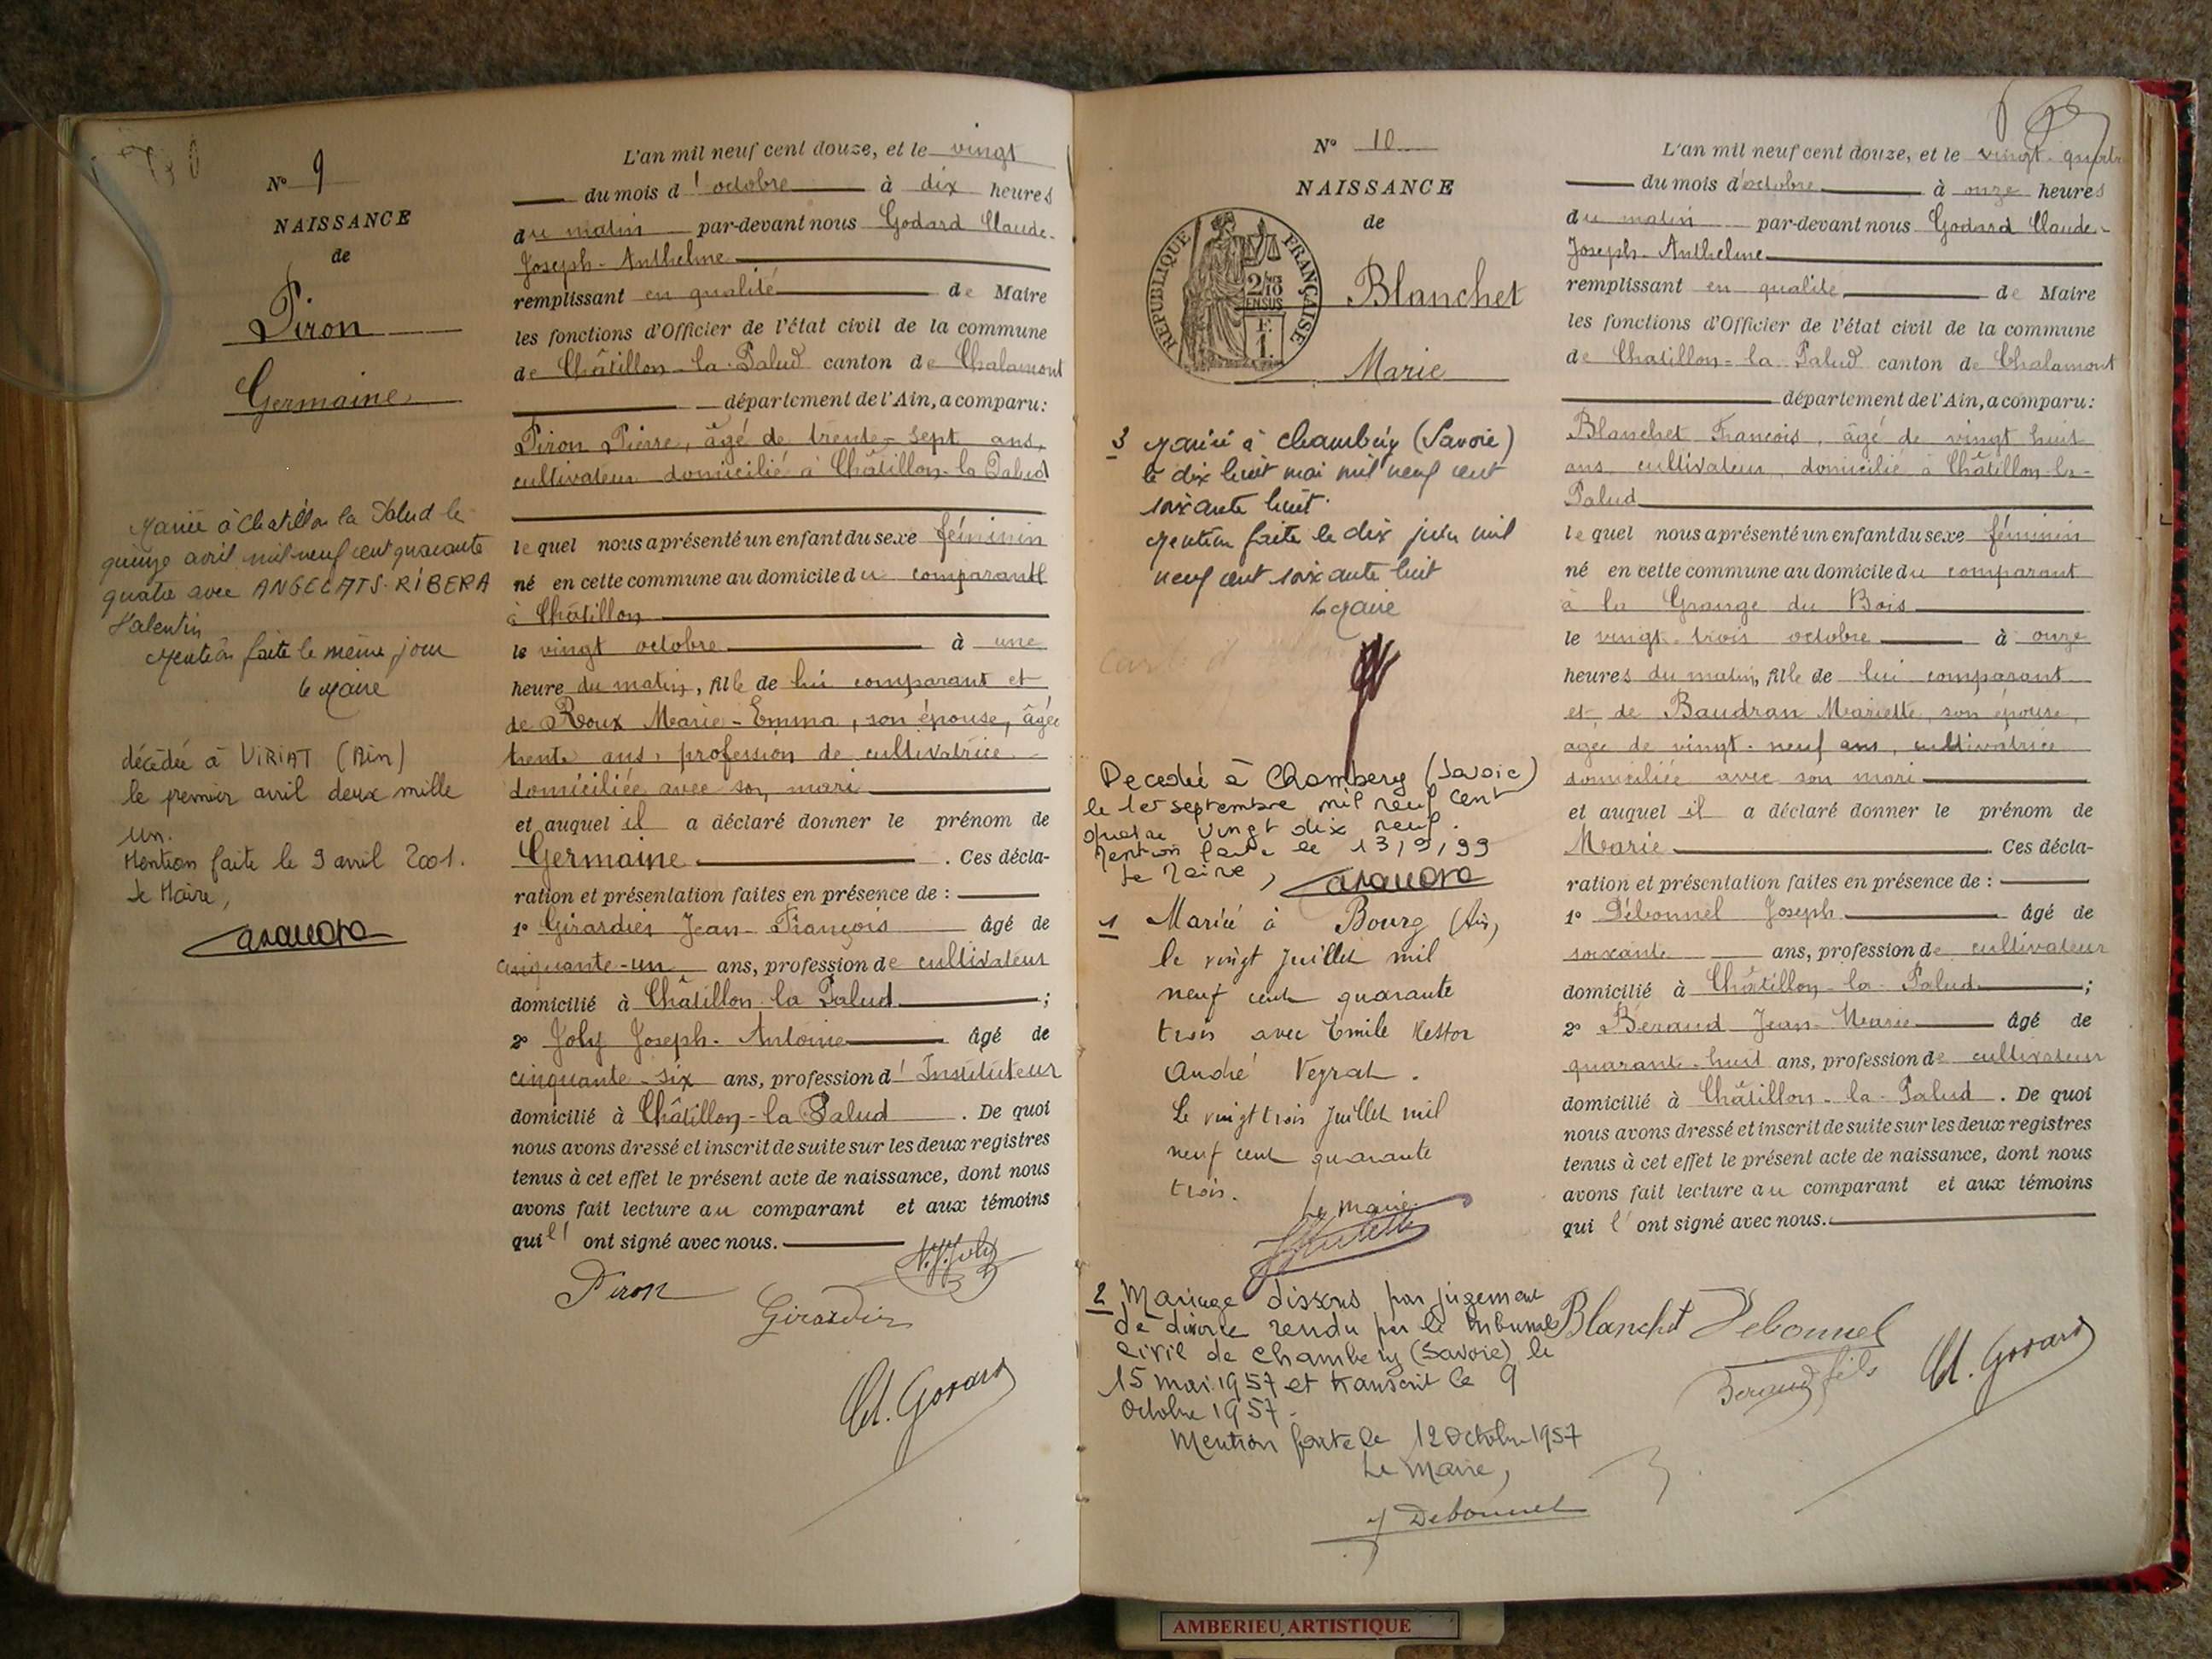 N° 9
NAISSANCE
de
Piron
Germaine
Mariée à Chatillon la Palud le
quinze avril mil neuf cent quarante
quatre avec ANGELATS-RIBERA
Valentin
Mention faite le même jour
le Maire
décédée à VIRIAT (Ain)
le premier avril deux mille
un.
Mention faite le 9 avril 2001.
Le Maire,
L'an mil neuf cent douze, et le vingt
du mois d'octobre à dix heures
du matin par-devant nous Godard Claude-
Joseph-Anthelme
remplissant en qualité de Maire
les fonctions d'Officier de l'état civil de la commune
de Châtillon-la-Palud canton de Chalamont
département de l'Ain, a comparu:
Piron Pierre, âgé de trente-sept ans,
cultivateur domicilié à Châtillon-la-Palud
lequel nous a présenté un enfant du sexe féminin
né en cette commune au domicile du comparant
à Châtillon
le vingt octobre à une
heure du matin, fille de lui comparant et
de Roux Marie-Emma, son épouse, âgée
trente ans, profession de cultivatrice
domiciliée avec son mari
et auquel il a déclaré donner le prénom de
Germaine. Ces décla-
ration et présentation faites en présence de :
1° Girardier Jean-François âgé de
cinquante-un ans, profession de cultivateur
domicilié à Châtillon-la-Palud ;
2° Joly Joseph-Antoine âgé de
cinquante-six ans, profession d'Instituteur
domicilié à Châtillon-la-Palud. De quoi
nous avons dressé et inscrit de suite sur les deux registres
tenus à cet effet le présent acte de naissance, dont nous
avons fait lecture au comparant et aux témoins
qui l' ont signé avec nous.
Piron
Girardier
Cl. Godard
N° 10
NAISSANCE
de
RÉPUBLIQUE FRANÇAISE
2/10
EN SUS
F.
1.
Blanchet
Marie
3 Mariée à Chambéry (Savoie)
le dix huit mai mil neuf cent
soixante huit.
Mention faite le dix juin mil
neuf cent soixante huit
le Maire
Decedée à Chambery (Savoie)
le 1er septembre mil neuf cent
quatre vingt dix neuf.
Mention faite le 13/9/99
Le Maire,
1 Mariée à Bourg (Ain)
le vingt Juillet mil
neuf cent quarante
trois avec Emile Nestor
André Veyrat.
Le vingt trois Juillet mil
neuf cent quarante
trois.
Le Maire
2 Mariage dissous par jugement
de divorce rendu par le tribunal
civil de Chambéry (Savoie) le
15 mai 1957 et transcrit le 9
Octobre 1957.
Mention faite le 12 Octobre 1957
Le Maire,
J Debonnel
L'an mil neuf cent douze, et le vingt-quatre
du mois d'octobre à onze heures
du matin par-devant nous Godard Claude-
Joseph-Anthelme
remplissant en qualité de Maire
les fonctions d'Officier de l'état civil de la commune
de Chatillon-la-Palud canton de Chalamont
département de l'Ain, a comparu:
Blanchet François, âgé de vingt huit
ans cultivateur, domicilié à Châtillon-la-
Palud
lequel nous a présenté un enfant du sexe féminin
né en cette commune au domicile du comparant
à la Grange du Bois
le vingt-trois octobre à onze
heures du matin, fille de lui comparant
et de Baudran Mariette, son épouse,
agée de vingt-neuf ans, cultivatrice
domiciliée avec son mari
et auquel il a déclaré donner le prénom de
Marie. Ces décla-
ration et présentation faites en présence de :
1° Débonnel Joseph âgé de
soixante ans, profession de cultivateur
domicilié à Châtillon-la-Palud ;
2° Beraud Jean-Marie âgé de
quarant-huit ans, profession de cultivateur
domicilié à Châtillon-la-Palud. De quoi
nous avons dressé et inscrit de suite sur les deux registres
tenus à cet effet le présent acte de naissance, dont nous
avons fait lecture au comparant et aux témoins
qui l' ont signé avec nous.
Blanchet Debonnel
Beraud fils
Cl. Godard
AMBERIEU ARTISTIQUE